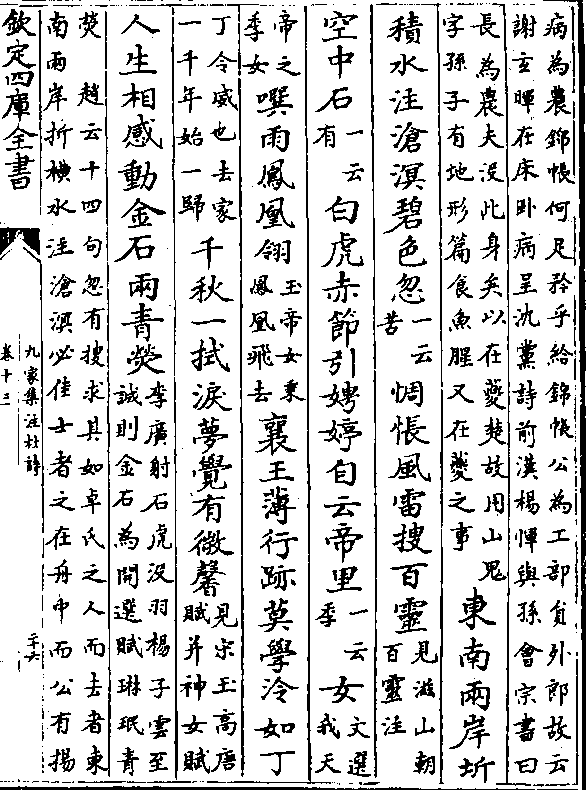 病為農錦帳何足矜乎給錦帳公為工部員外郎故云
謝玄暉在床卧病呈沈黨詩前漢楊惲與孫會宗書曰
長為農夫没此身矣以在夔楚故用山鬼
字孫子有地形篇食魚腥又在夔之事
東南兩岸圻
積水注滄溟碧色忽一云苦惆悵風雷搜百靈見游山朝百靈注
空中石一云有白虎赤節引娉婷自云帝里一云季女文選我天
帝之季女噀雨鳳凰翎玉帝女乗鳳凰飛去襄王薄行跡莫學冷如丁
丁令威也去家一千年始一歸千秋一拭淚夢覺有微馨見宋玉高唐賦并神女賦
人生相感動金石兩青熒李廣射石虎没羽楊子雲至誠則金石為開選賦琳珉青
熒趙云十四句忽有搜求其如卓氏之人而去者東
南兩岸折横水注滄溟必佳士者之在舟中而公有揚
欽定四庫全書
九家集注杜詩
卷十三
二十六